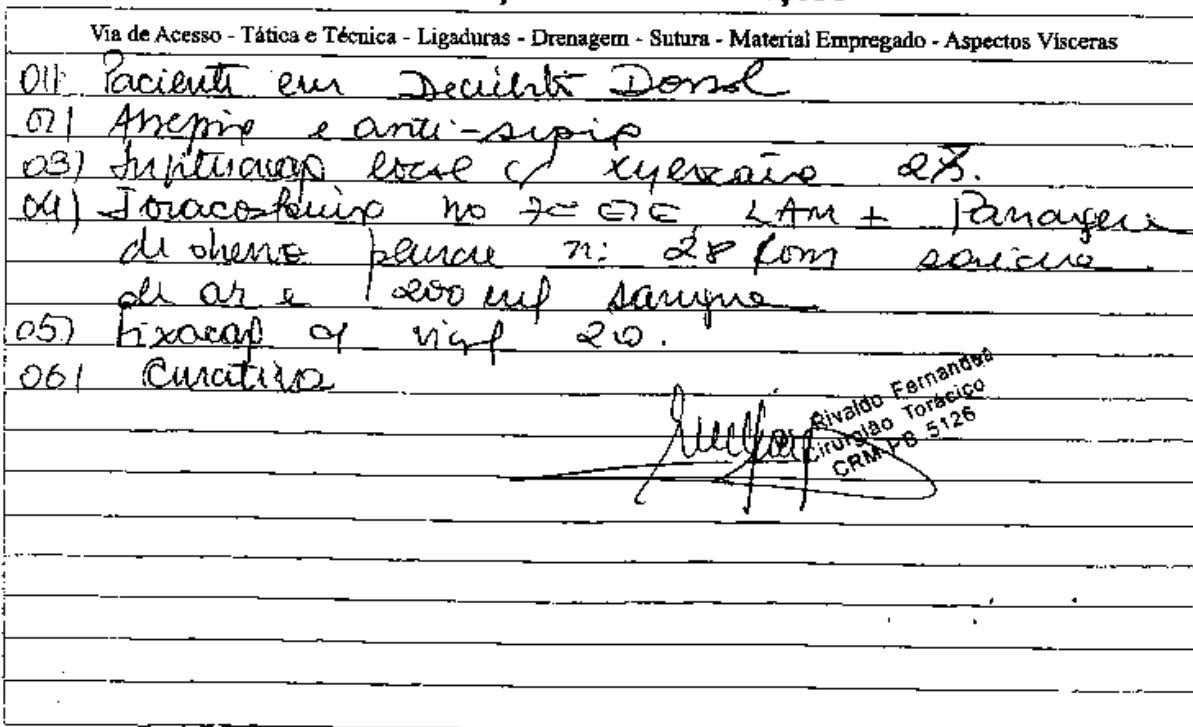 Via de Acesso - Tática e Técnica - Ligaduras - Drenagem - Sutura - Material Empregado - Aspectos Vísceras
01) Paciente em Decúbito Dorsal
02) Assepsia e anti-sepsia
03) Infiltração local c/ xylocaína 2%.
04) Toracostomia no 7º EIE LAM + Passagem
de dreno pleural nº 28 com saída
de ar e 200 ml sangue
05) Fixação
20.
06) Curativo
Rivaldo Fernandes
Cirurgião Torácico
CRM PB 5126